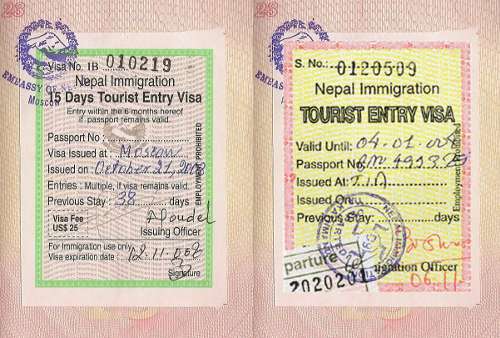 23
EMBASSY OF NE
Moscow
Visa No. IB 010219
Nepal Immigration
15 Days Tourist Entry Visa
Entry within the 6 months hereof
if passport remains valid.
Passport No :
Visa Issued at : Moscow
Issued on : October 21, 200
Entries : Multiple, if visa remains valid.
Previous Stay : 38 days
Visa Fee
US$ 25
Issuing Officer
For Immigration use only
Visa expiration date :
Signature
EMPLOYMENT PROHIBITED
23
S. No.: 0120509
Nepal Immigration
TOURIST ENTRY VISA
Valid Until: 04.01.00
Passport No
Issued At: T.I.A
Issued On:
Previous Stay: days
Employment
parture
gration Officer
2020201
06.11